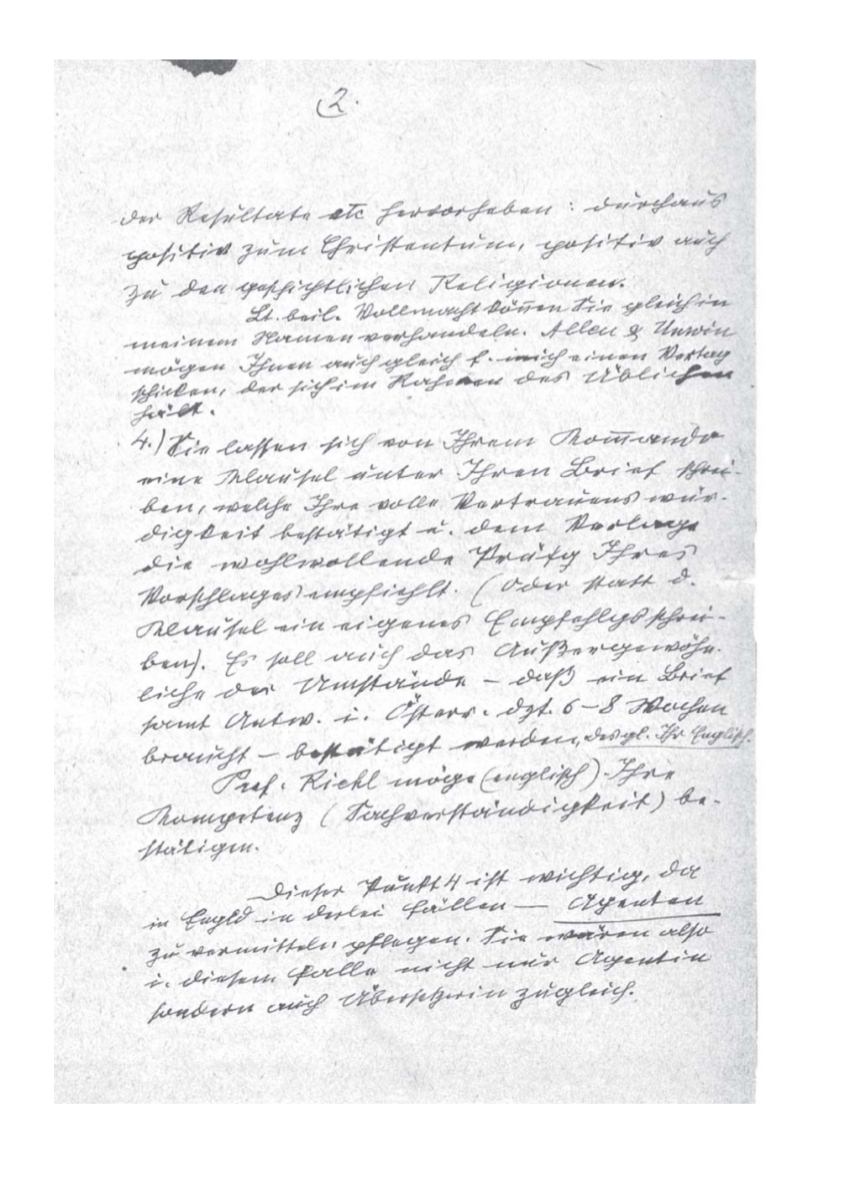 2.
der Resultate etc hervorheben: durchaus
positiv zum Christentum, positiv auch
zu den geschichtlichen Religionen.
Lt. beil. Vollmacht können Sie gleich in
meinem Namen verhandeln. Allen & Unwin
mögen Ihnen auch gleich f. mich einen Vertrag
schicken, der sich im Rahmen des Üblichen
hält.
4.) Sie lassen sich von Ihrem Kommando
eine Klausel unter Ihren Brief schrei-
ben, welche Ihre volle Vertrauenswür-
digkeit bestätigt u. dem Verlage
die wohlwollende Prüfg Ihres
Vorschlages empfiehlt. (Oder statt d.
Klausel ein eigenes Empfehlgsschrei-
ben). Es soll auch das Außergewöhn-
liche der Umstände – daß ein Brief
samt Antw. i. Österr. dzt. 6–8 Wochen
braucht – bestätigt werden, desgl. Ihr Englisch.
Prof. Riehl möge (englisch) Ihre
Kompetenz (Sachverständigkeit) be-
stätigen.
Dieser Punkt 4 ist wichtig, da
in Engld in derlei Fällen — Agenten
zu vermitteln pflegen. Sie wären also
i. diesem Falle nicht nur Agentin
sondern auch Übersetzerin zugleich.